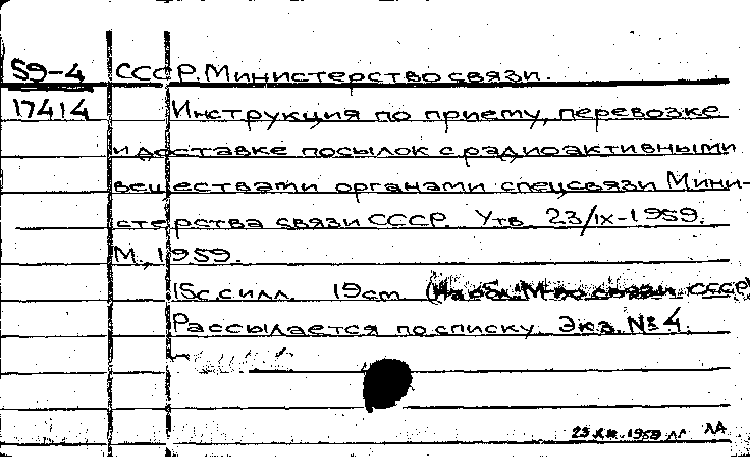 59-4 СССР. Министерство связи.
17414 Инструкция по приему, перевозке
и доставке посылок с радиоактивными
веществами органами спецсвязи Мини-
стерства связи СССР. Утв. 23/IX-1959.
М., 1959.
15 с. с илл. 19 см (На обл. М-во связи СССР)
Рассылается по списку. Экз. № 4.
25 XII. 1959